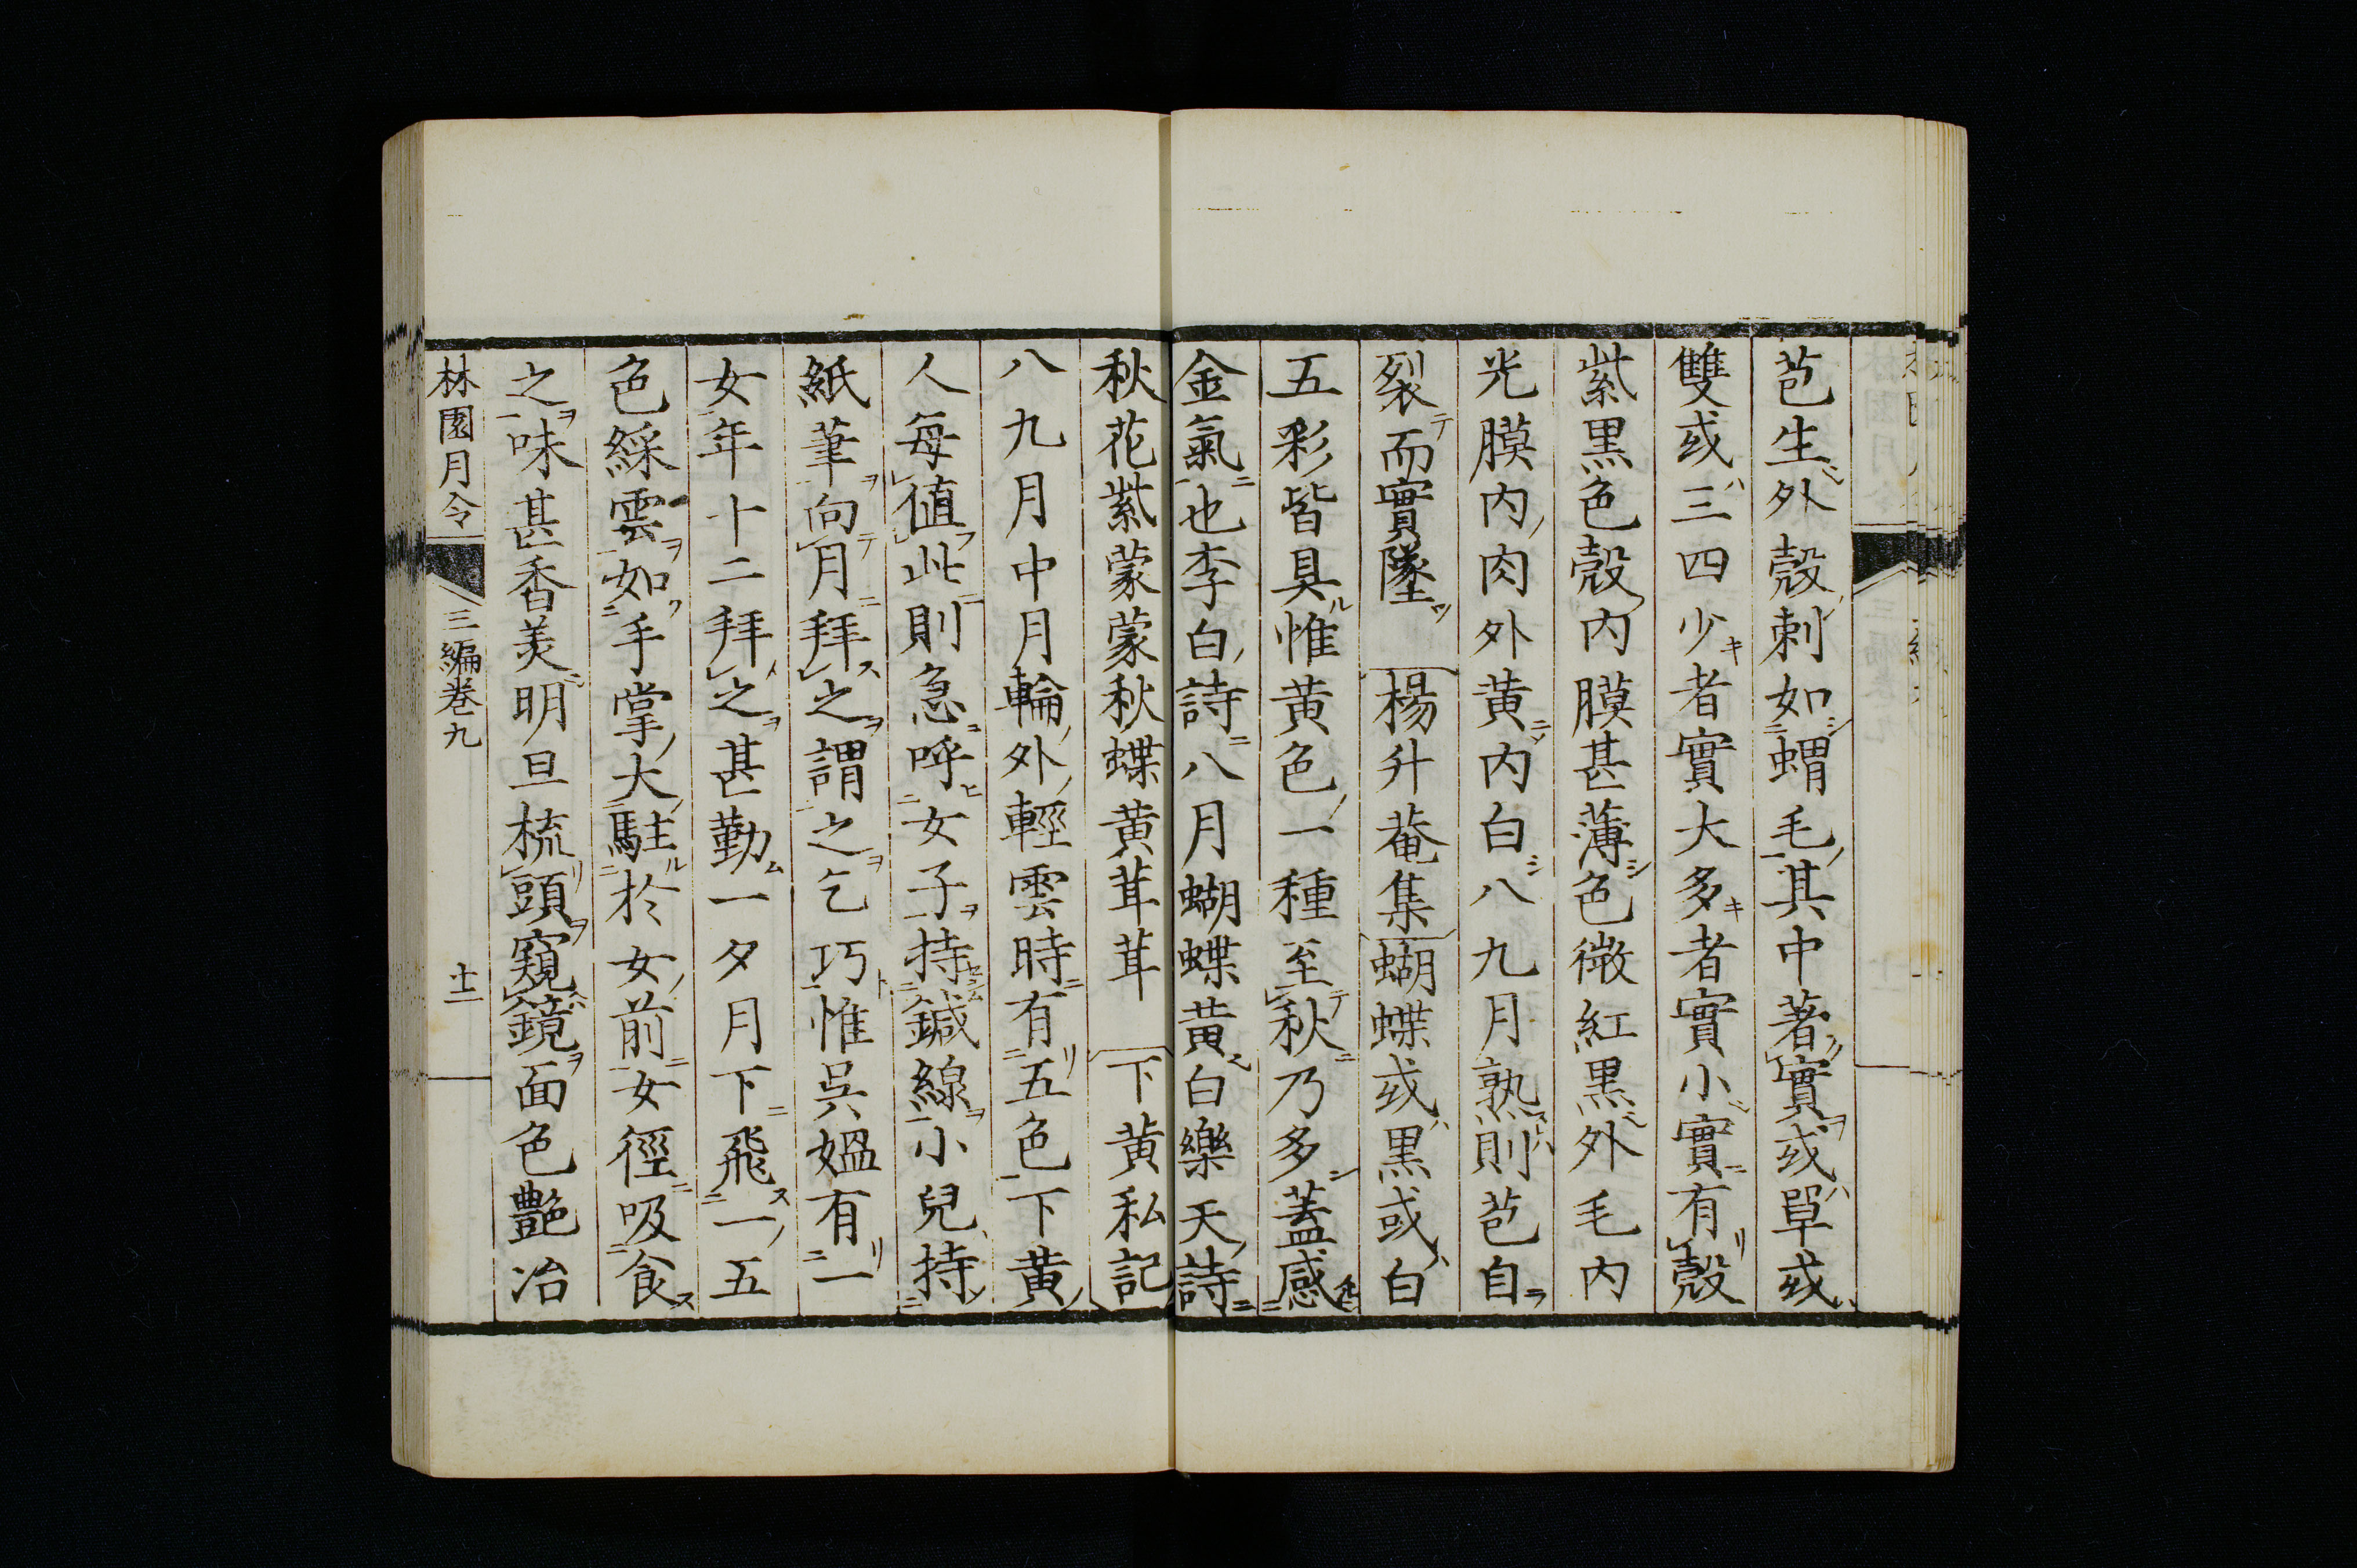 苞生外殻刺如蝟毛其中著實或單或
雙或三四少者實大多者實小實有殻
紫黒色殻内膜甚薄色微紅黒外毛内
光膜内肉外黄内白八九月熟則苞自
裂而實墜　楊升菴集蝴蝶或黒或白
五彩皆具惟黄色一種至秋乃多蓋感
金氣也李白詩八月蝴蝶黄白樂天詩
秋花紫蒙蒙秋蝶黄茸茸　下黄私記
八九月中月輪外輕雲時有五色下黄
人毎値此則急呼女子持鍼線小兒持
紙筆向月拜之謂之乞巧惟呉媼有一
女年十二拜之甚勤一夕月下飛一五
色綵雲如手掌大駐於女前女徑吸食
之味甚香美明旦梳頭窺鏡面色艶冶
林園月令　三編巻九　十二